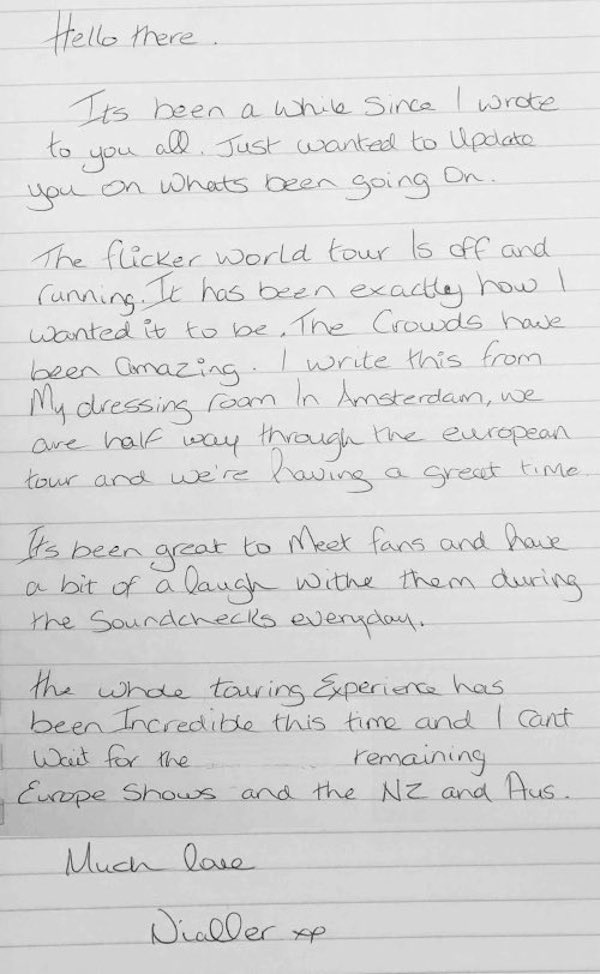 Hello there.
Its been a while since I wrote
to you all. Just wanted to Update
you on whats been going On.
The flicker world tour Is off and
running. It has been exactly how I
wanted it to be. The Crowds have
been Amazing. I write this from
My dressing room In Amsterdam, we
are half way through the european
tour and we're having a great time.
Its been great to Meet fans and have
a bit of a laugh withe them during
the Soundchecks everyday.
the whole touring Experience has
been Incredible this time and I Cant
Wait for the remaining
Europe Shows and the NZ and Aus.
Much love
Nialler xp